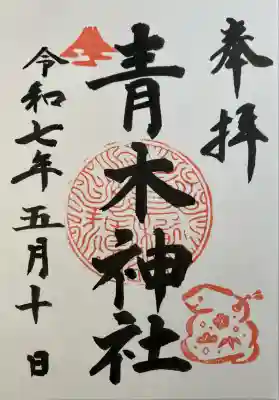 奉拝
青木神社
令和七年五月十日